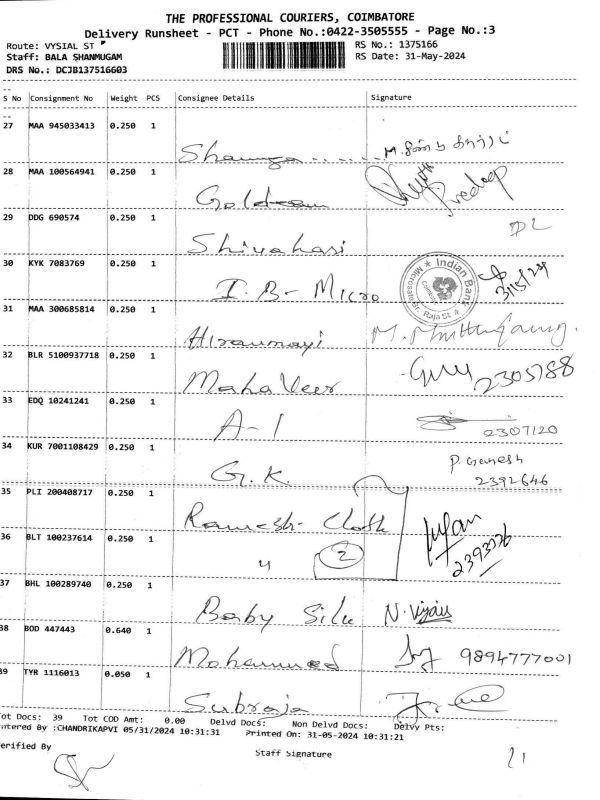 THE PROFESSIONAL COURIERS, COIMBATORE
Delivery Runsheet - PCT - Phone No.:0422-3505555 - Page No.:3
Route: VYSIAL ST
RS No.: 1375166
Staff: BALA SHANMUGAM
RS Date: 31-May-2024
DRS No.: DCJB137516603
S No Consignment No Weight PCS Consignee Details Signature
27 MAA 945033413 0.250 1
28 MAA 100564941 0.250 1
Pradeep
29 DDG 690574 0.250 1
Shivahari
30 KYK 7083769 0.250 1
I.B- Micro
Indian Bank
31/5/24
31 MAA 300685814 0.250 1
Hiranmayi
32 BLR 5100937718 0.250 1
Mahaveer
2305788
33 EDQ 10241241 0.250 1
A-1
2307120
34 KUR 7001108429 0.250 1
G.K.
P. Ganesh
2392646
35 PLI 200408717 0.250 1
Ramesh Cloth
36 BLT 100237614 0.250 1
"
2
37 BHL 100289740 0.250 1
Baby Silk
N. Vijay
38 BOD 447443 0.640 1
Mohammed
9894777001
39 TYR 1116013 0.050 1
Subraja
Tot Docs: 39 Tot COD Amt: 0.00 Delvd Docs: Non Delvd Docs: Delvy Pts:
Entered By :CHANDRIKAPVI 05/31/2024 10:31:31 Printed On: 31-05-2024 10:31:21
Verified By
Staff Signature
21